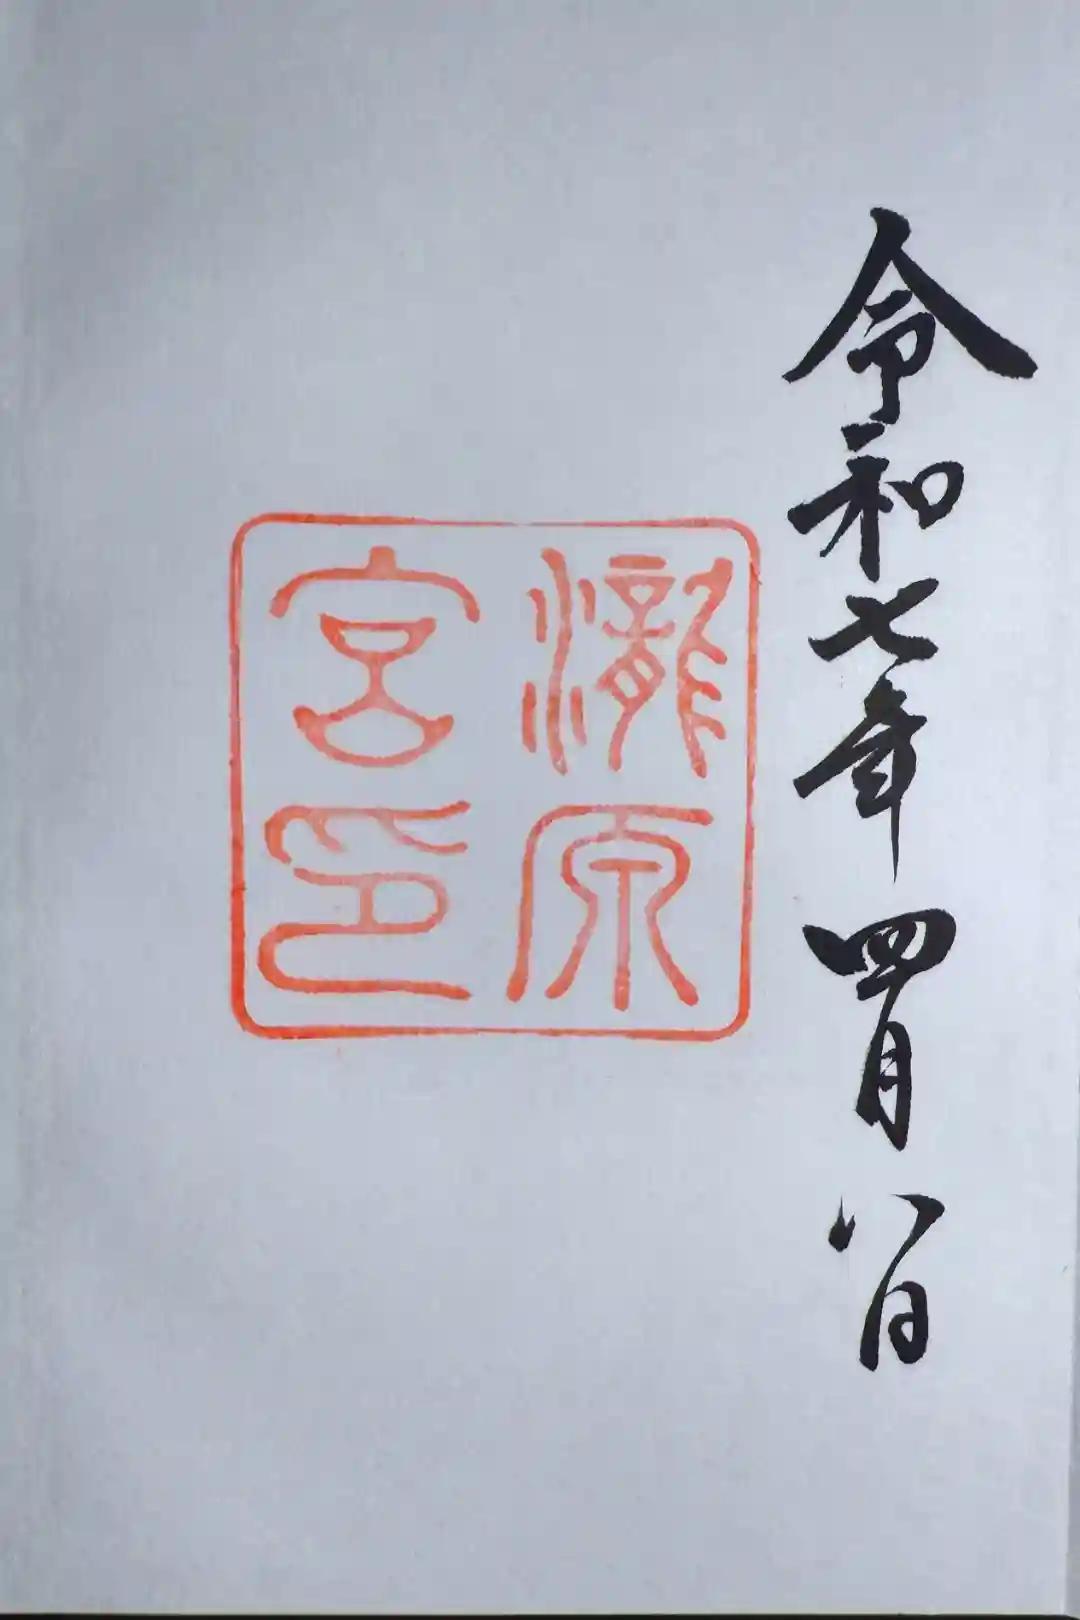 令和七年四月八日
瀧原
宮印